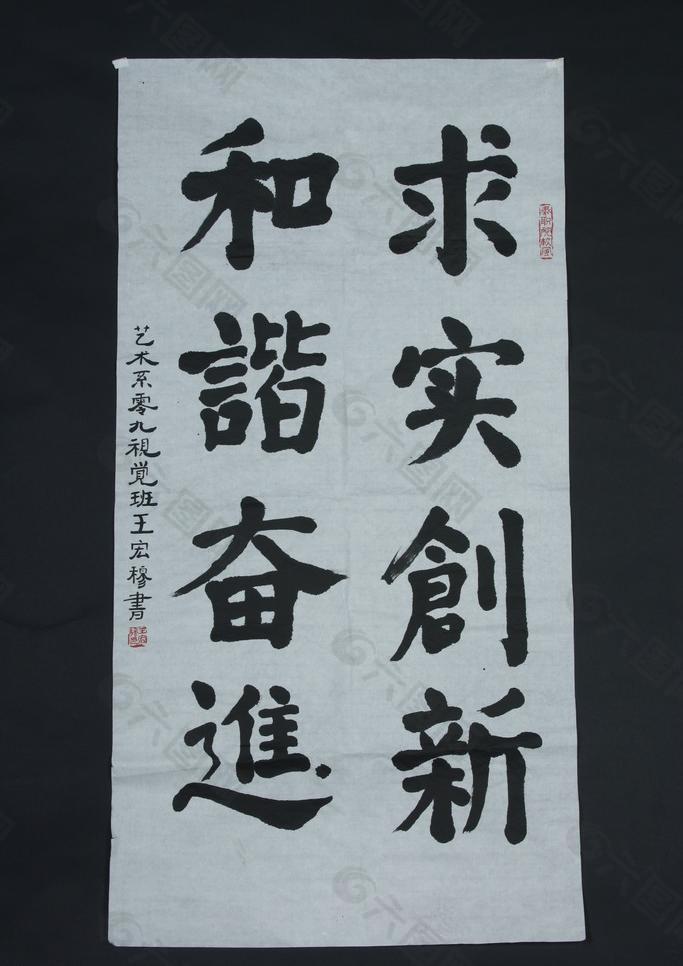 求实創新
和諧奋進
艺术系零九視覚班王宏穆書
六图网